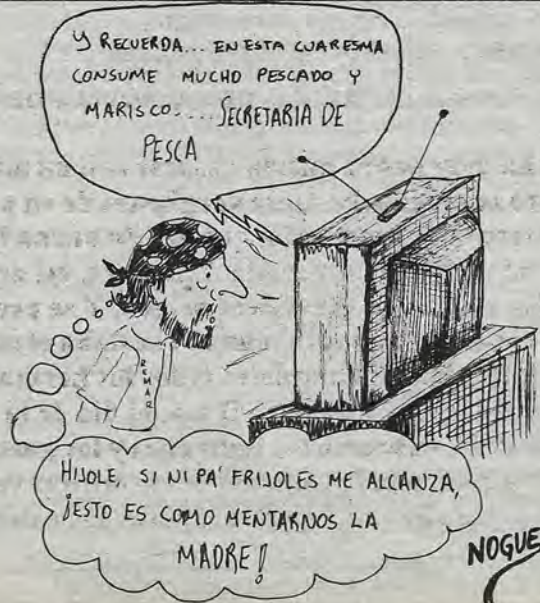 Y RECUERDA... EN ESTA CUARESMA
CONSUME MUCHO PESCADO Y
MARISCO.... SECRETARIA DE
PESCA
REMAR
HIJOLE, SI NI PA' FRIJOLES ME ALCANZA,
¡ESTO ES COMO MENTARNOS LA
MADRE!
NOGUE